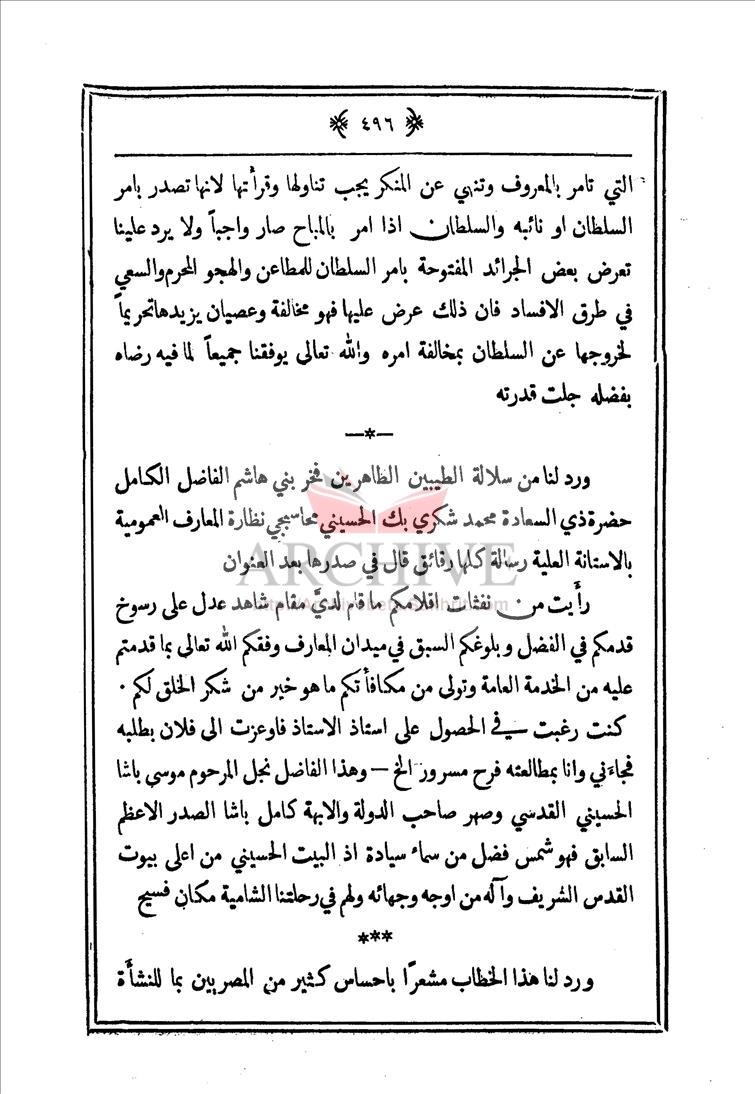 ٤٩٦
التي تامر بالمعروف وتنهي عن المنكر يجب تناولها وقرأتها لانها تصدر بامر
السلطان او نائبه والسلطان اذا امر بالمباح صار واجباً ولا يرد علينا
تعرض بعض الجرائد المفتوحة بامر السلطان للمطاعن والهجو المحرم والسعي
في طرق الافساد فان ذلك عرض عليها فهو مخالفة وعصيان يزيدها تحريماً
لخروجها عن السلطان بمخالفة امره والله تعالى يوفقنا جميعاً لما فيه رضاه
بفضله جلت قدرته
—*—
ورد لنا من سلالة الطيبين الطاهرين فخر بني هاشم الفاضل الكامل
حضرة ذي السعادة محمد شكري بك الحسيني محاسبجي نظارة المعارف العمومية
بالاستانة العلية رسالة كلها رقائق قال في صدرها بعد العنوان
رأيت من نفثات اقلامكم ما قام لديَّ مقام شاهد عدل على رسوخ
قدمكم في الفضل وبلوغكم السبق في ميدان المعارف وفقكم الله تعالى بما قدمتم
عليه من الخدمة العامة وتولى من مكافأتكم ما هو خير من شكر الخلق لكم ٠
كنت رغبت في الحصول على استاذ الاستاذ فاوعزت الى فلان بطلبه
فجاءني وانا بمطالعته فرح مسرور الخ — وهذا الفاضل نجل المرحوم موسى باشا
الحسيني القدسي وصهر صاحب الدولة والابهة كامل باشا الصدر الاعظم
السابق فهو شمس فضل من سماء سيادة اذ البيت الحسيني من اعلى بيوت
القدس الشريف وآله من اوجه وجهائه ولهم في رحلتنا الشامية مكان فسيح
***
ورد لنا هذا الخطاب مشعرًا باحساس كثير من المصريين بما للنشأة
ARCHIVE